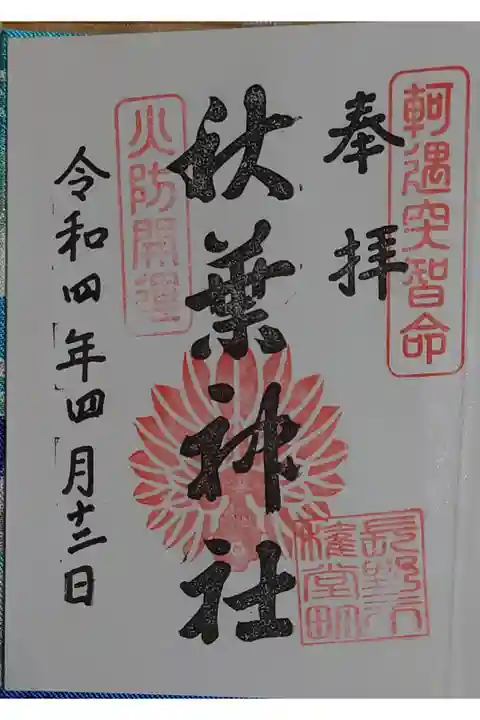 軻遇突智命
奉拝
長野市
権堂町
秋葉神社
火防開運
令和四年四月十二日